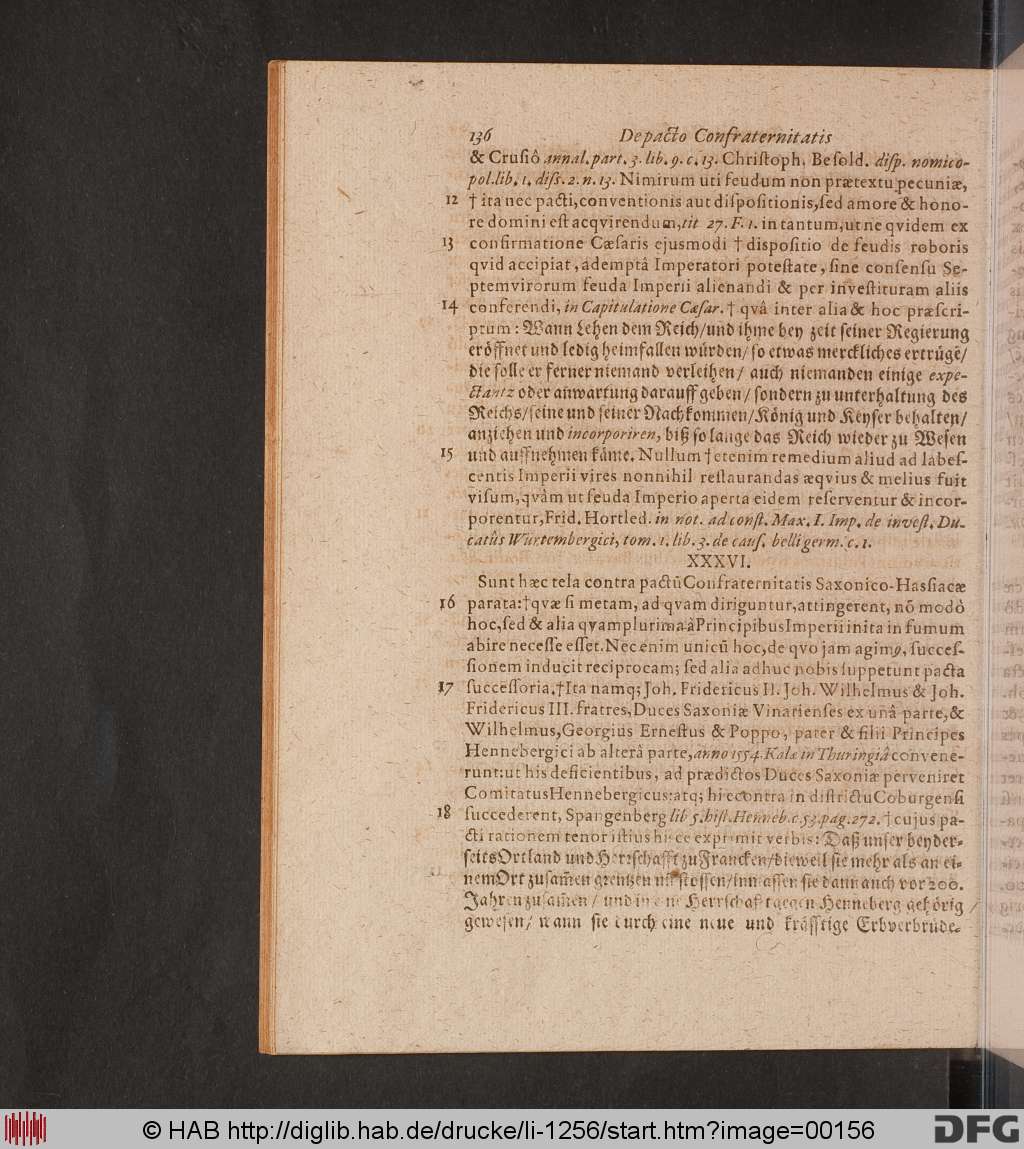 136 De pacto Confraternitatis
& Crusiô annal. part. 3. lib. 9. c. 13. Christoph. Besold. disp. nomico-
pol. lib. 1. diss. 2. n. 13. Nimirum uti feudum non prætextu pecuniæ,
12 † ita nec pacti, conventionis aut dispositionis, sed amore & hono-
re domini est acqvirendum, tit 27. F. 1. in tantum, ut ne qvidem ex
13 confirmatione Cæsaris ejusmodi † dispositio de feudis roboris
qvid accipiat, ademptâ Imperatori potestate, sine consensu Se-
ptemvirorum feuda Imperii alienandi & per investituram aliis
14 conferendi, in Capitulatione Cæsar. † qvâ inter alia & hoc præscri-
ptum: Wann Lehen dem Reich/ und ihme bey zeit seiner Regierung
eröffnet und ledig heimfallen würden/ so etwas merckliches ertrüge/
die solle er ferner niemand verleihen/ auch niemanden einige expe-
ctantz oder anwartung darauff geben/ sondern zu unterhaltung des
Reichs/ seine und seiner Nachkommen/ König und Keyser behalten/
anziehen und incorporiren, biß so lange das Reich wieder zu Wesen
15 und auffnehmen käme. Nullum † etenim remedium aliud ad labes-
centis Imperii vires nonnihil restaurandas æqvius & melius fuit
visum, qvàm ut feuda Imperio aperta eidem reserventur & incor-
porentur, Frid. Hortled. in not. ad const. Max. I. Imp. de invest. Du-
catûs Würtembergici, tom. 1. lib. 3. de caus. belli germ. c. 1.
XXXVI.
Sunt hæc tela contra pactũ Confraternitatis Saxonico-Hassiacæ
16 parata: † qvæ si metam, ad qvam diriguntur, attingerent, nõ modò
hoc, sed & alia qvamplurima à Principibus Imperii inita in fumum
abire necesse esset. Nec enim unicũ hoc, de qvo jam agimꝰ, succes-
sionem inducit reciprocam; sed alia adhuc nobis suppetunt pacta
17 successoria. † Ita namq; Joh. Fridericus II. Joh. Wilhelmus & Joh.
Fridericus III. fratres, Duces Saxoniæ Vinarienses ex unâ parte, &
Wilhelmus, Georgius Ernestus & Poppo, pater & filii Principes
Hennebergici ab alterâ parte, anno 1554. Kalæ in Thuringiâ convene-
runt: ut his deficientibus, ad prædictos Duces Saxoniæ perveniret
Comitatus Hennebergicus: atq; hi econtra in districtu Coburgensi
18 succederent, Spangenberg lib 5. hist. Henneb. c. 53. pag. 272. † cujus pa-
cti rationem tenor istius hisce exprimit verbis: Daß unser beyder-
seits Ortland und Herrschafft zu Francken/ dieweil sie mehr als an ei-
nem Ort zusam̃en grentzen und stossen/ inn assen sie dann auch vor 200.
Jahren zusam̃en/ und in eine Herrschafft gegen Henneberg gehörig/
gewesen/ wann sie durch eine neue und kräfftige Erbverbrüde-
© HAB http://diglib.hab.de/drucke/li-1256/start.htm?image=00156
DFG